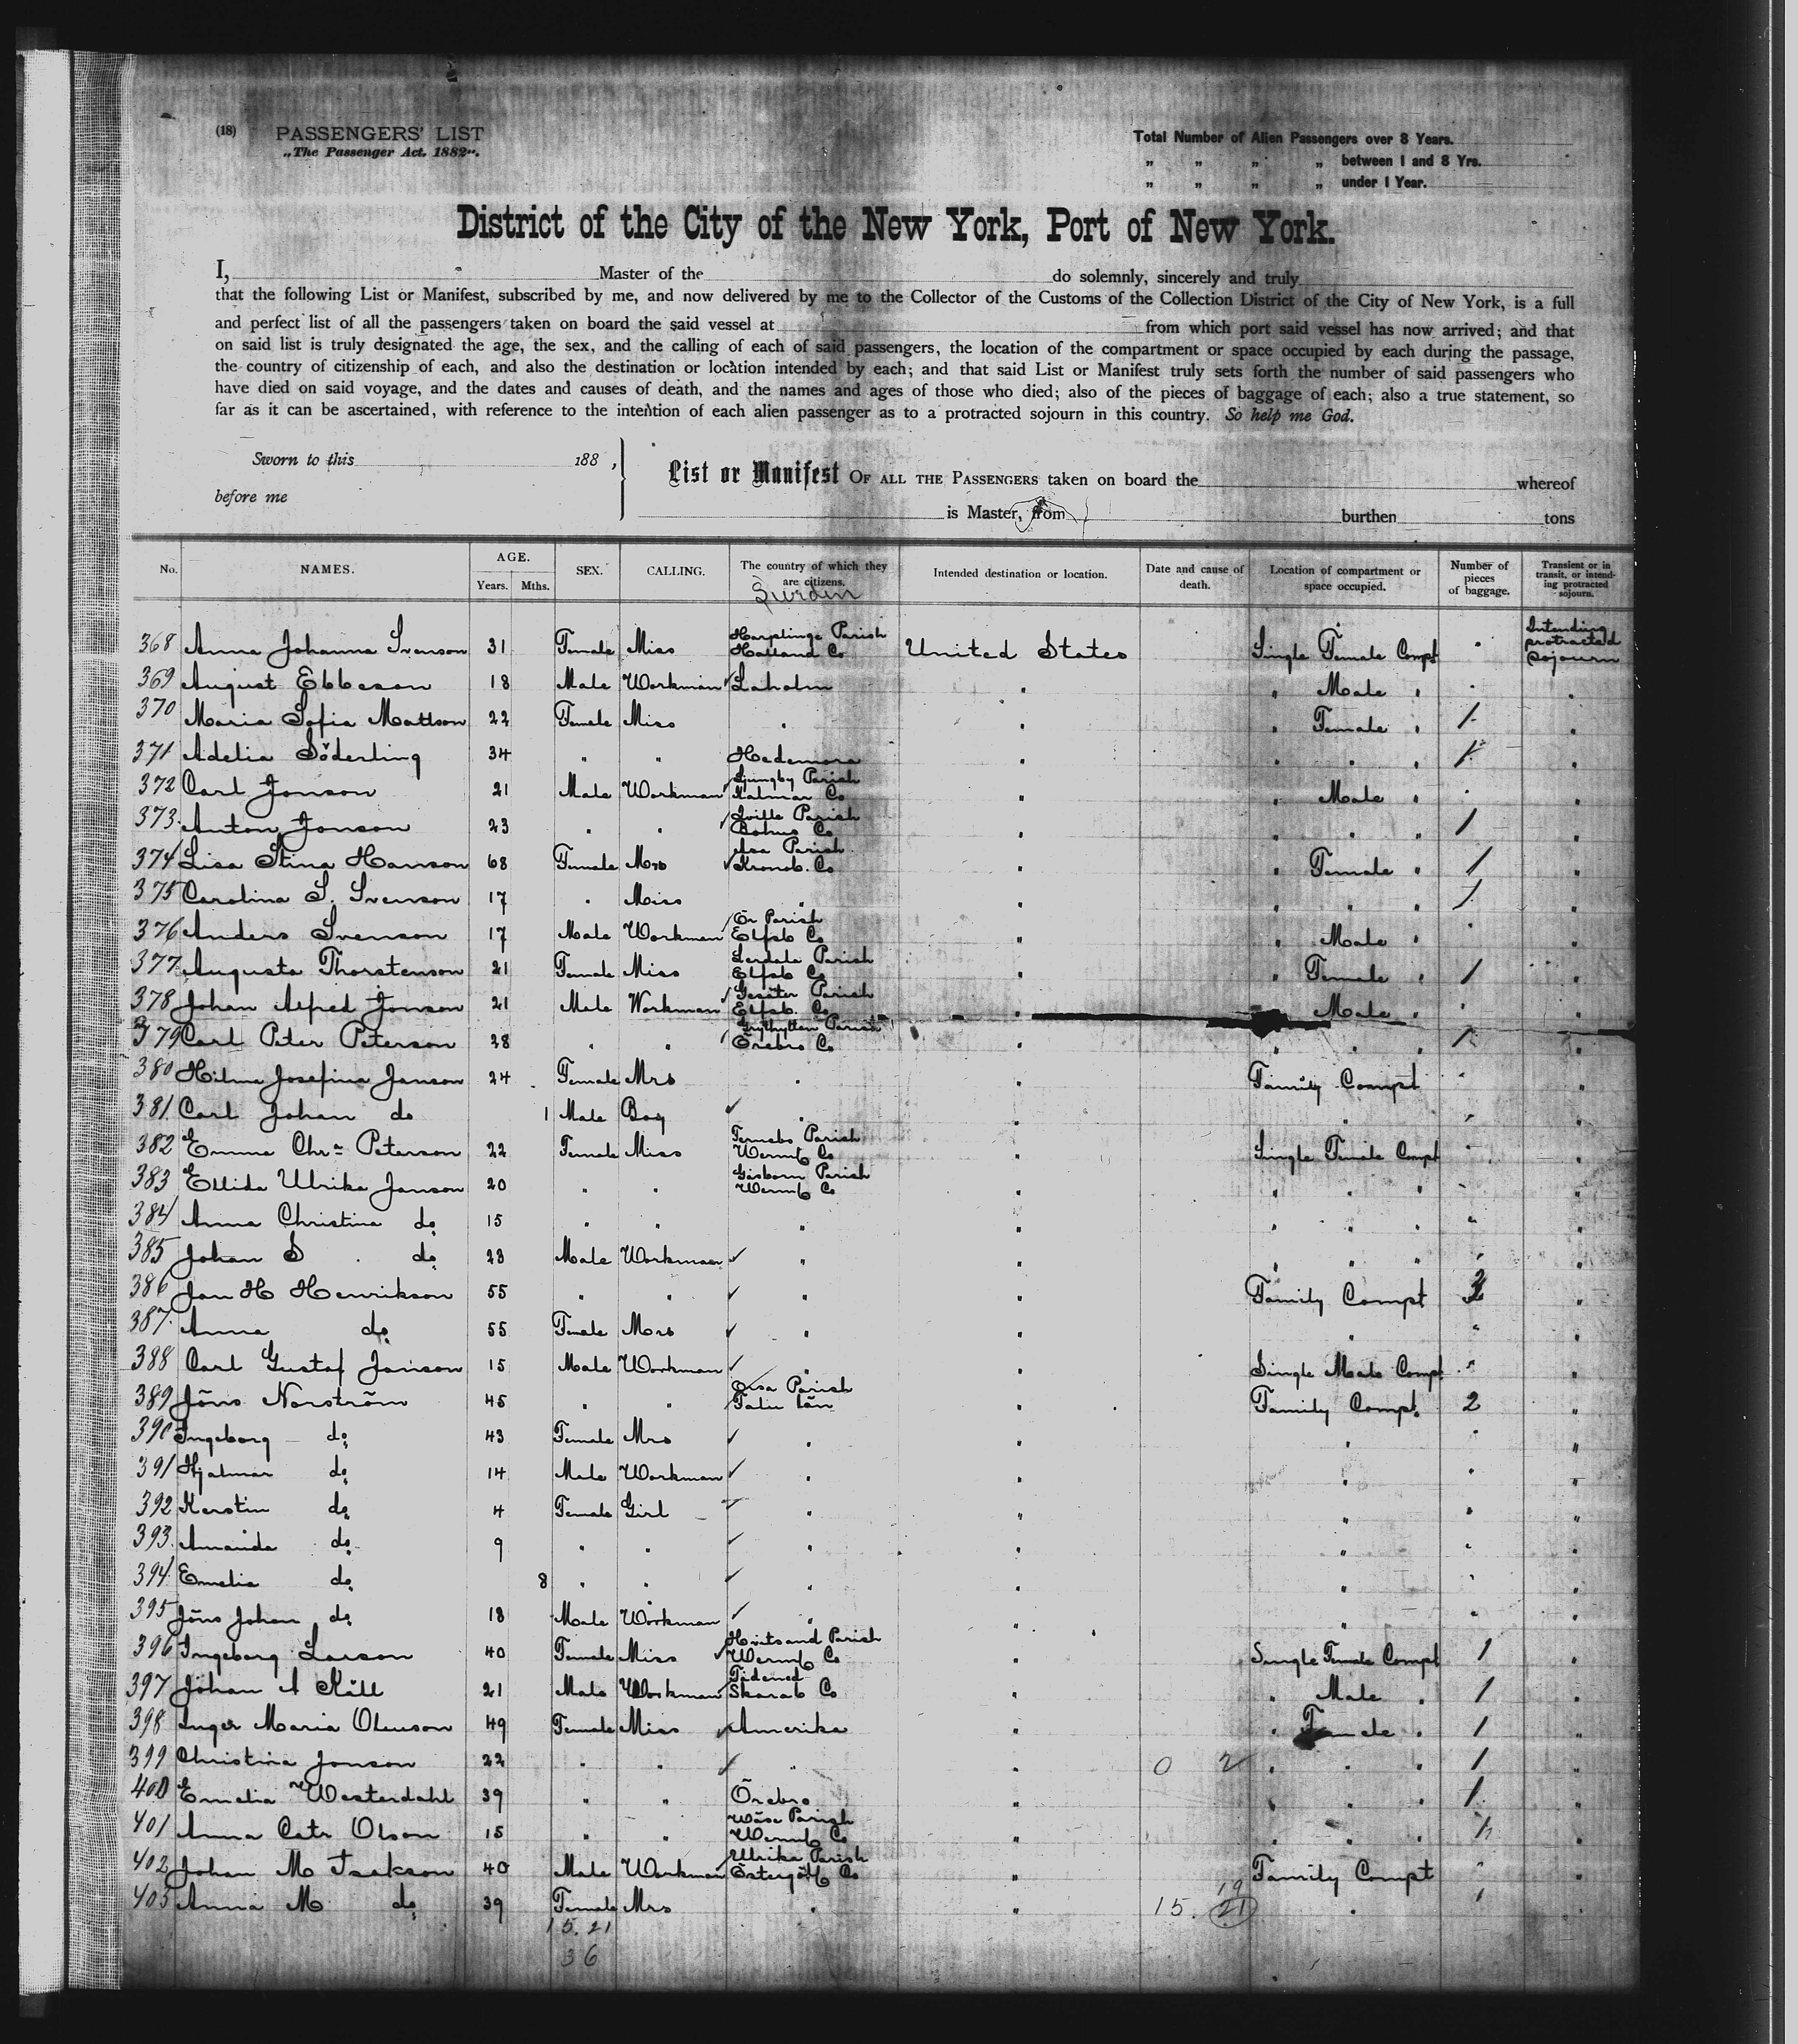 (18) PASSENGERS' LIST
„The Passenger Act, 1882".
Total Number of Alien Passengers over 8 Years.
„ „ „ „ between 1 and 8 Yrs.
„ „ „ „ under 1 Year.
District of the City of the New York, Port of New York.
I, Master of the do solemnly, sincerely and truly
that the following List or Manifest, subscribed by me, and now delivered by me to the Collector of the Customs of the Collection District of the City of New York, is a full
and perfect list of all the passengers taken on board the said vessel at from which port said vessel has now arrived; and that
on said list is truly designated the age, the sex, and the calling of each of said passengers, the location of the compartment or space occupied by each during the passage,
the country of citizenship of each, and also the destination or location intended by each; and that said List or Manifest truly sets forth the number of said passengers who
have died on said voyage, and the dates and causes of death, and the names and ages of those who died; also of the pieces of baggage of each; also a true statement, so
far as it can be ascertained, with reference to the intention of each alien passenger as to a protracted sojourn in this country. So help me God.
Sworn to this 188 ,
before me
List or Manifest OF ALL THE PASSENGERS taken on board the whereof
is Master, from burthen tons
No. NAMES. AGE. Years. Mths. SEX. CALLING. The country of which they are citizens. Intended destination or location. Date and cause of death. Location of compartment or space occupied. Number of pieces of baggage. Transient or in transit, or intending protracted sojourn.
368 Anna Johanna Svenson 31 Female Miss Harplinge Parish Halland Co United States Single Female Compt " Intending protracted Sojourn
369 August Ebbeson 18 Male Workman Laholm " " Male " " "
370 Maria Sofia Mattson 22 Female Miss " " " Female " 1 "
371 Adelia Söderling 34 " " Hedemora " " " " 1 "
372 Carl Jonson 21 Male Workman Ljungby Parish Kalmar Co " " Male " " "
373 Anton Jonson 23 " " Sville Parish Bohus Co " " " " 1 "
374 Lisa Stina Hanson 68 Female Mrs Asa Parish Kronob. Co " " Female " 1 "
375 Carolina S. Svenson 17 " Miss " " " " " 1 "
376 Anders Svenson 17 Male Workman Ör Parish Elfsb Co " " Male " " "
377 Augusta Thorstenson 21 Female Miss Lerdala Parish Elfsb Co " " Female " 1 "
378 Johan Alfred Jonson 21 Male Workman Gesäter Parish Elfsb. Co " " Male " " "
379 Carl Peter Peterson 28 " " Grythytten Parish Örebro Co " " " " 1 "
380 Hilma Josefina Janson 24 Female Mrs " " Family Compt " "
381 Carl Johan do 1 Male Boy " " " " "
382 Emma Chr= Peterson 22 Female Miss Fernebo Parish Wermb Co " Single Female Compt " "
383 Ellida Ulrika Janson 20 " " Gåsborn Parish Wermb Co " " " " " "
384 Anna Christina do 15 " " " " " " " " "
385 Johan S do 23 Male Workman " " " " " " "
386 Jan H Henrikson 55 " " " " Family Compt "
387 Anna do 55 Female Mrs " " " " "
388 Carl Gustaf Janson 15 Male Workman " " Single Male Compt " "
389 Jöns Norström 45 " " Orsa Parish Falu län " Family Compt. 2 "
390 Ingeborg do 43 Female Mrs " " " " "
391 Hjalmar do 14 Male Workman " " " " "
392 Kerstin do 4 Female Girl " " " " "
393 Amanda do 9 " " " " " " "
394 Emelia do 8 " " " " " " "
395 Jöns Johan do 18 Male Workman " " " " "
396 Ingeborg Larson 40 Female Miss Hvitsand Parish Wermb Co " Single Female Compt 1 "
397 Johan A Käll 21 Male Workman Tidened Skarab Co " " Male " 1 "
398 Inger Maria Olauson 49 Female Miss Amerika " " Female " 1 "
399 Christina Jonson 22 " " " " 0 2 " " " 1 "
400 Emelia Westerdahl 39 " " Örebro " " " " 1 "
401 Anna Catr Olson 15 " " Wäse Parish Wermb Co " " " " 1 "
402 Johan M Isakson 40 Male Workman Ulrika Parish Östergötl Co " Family Compt " "
403 Anna M do 39 Female Mrs " " 15. 19 21 " 1 "
15. 21
36